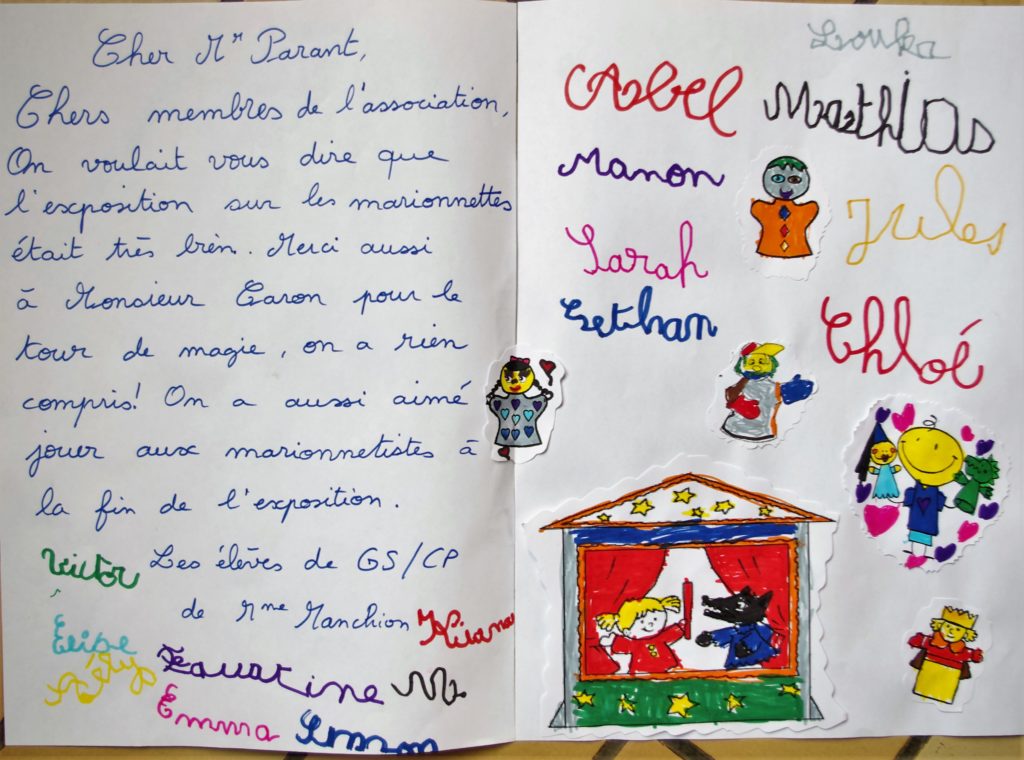 Cher Mr Parant,
Chers membres de l'association,
On voulait vous dire que
l'exposition sur les marionnettes
était très bien. Merci aussi
à Monsieur Caron pour le
tour de magie, on a rien
compris! On a aussi aimé
jouer aux marionnetistes à
la fin de l'exposition.
Les élèves de GS/CP
de Mme Manchion
Victor
Elise
Faustine
Emma
Simon
Louka
Abel
Mathias
Manon
Jules
Sarah
Chloé